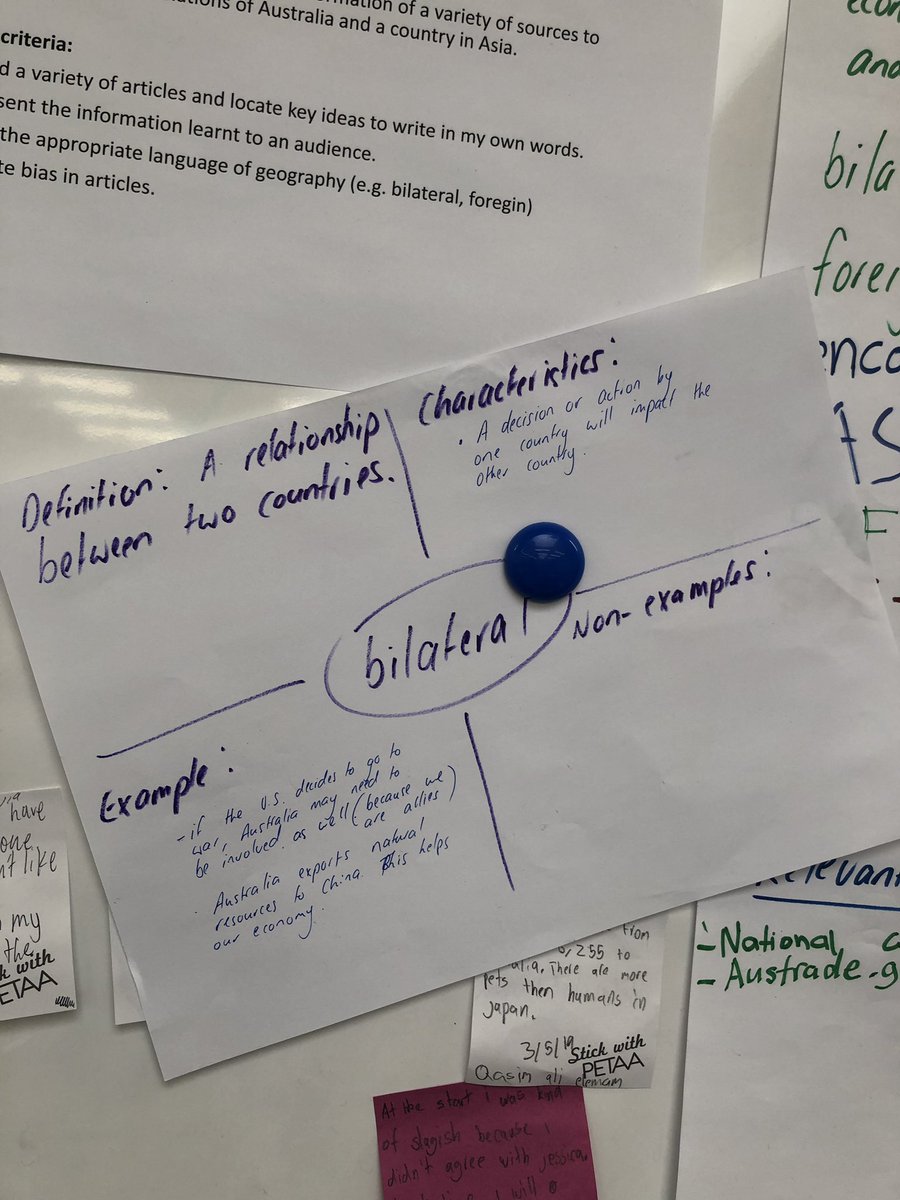 mation of a variety of sources to
tions of Australia and a country in Asia.
criteria:
d a variety of articles and locate key ideas to write in my own words.
sent the information learnt to an audience.
the appropriate language of geography (e.g. bilateral, foregin)
te bias in articles.
and
bila
forei
Definition: A relationship
between two countries.
Characteristics:
. A decision or action by
one country will impact the
other country.
bilateral
Non-examples:
Example:
- if the U.S. decides to go to
war, Australia may need to
be involved as well (because we
are allies)
. Australia exports natural
resources to China. This helps
our economy.
have
one
n't like
my
the
ck with
PETAA
from
,255 to
alia. There are more
pets then humans in
Japan.
3/5/19
Stick with
PETAA
Qasim ali elemam
At the start I was kind
of slagish because I
didn't agree with jessica.
I will
Relevant
- National
- Austrade.g